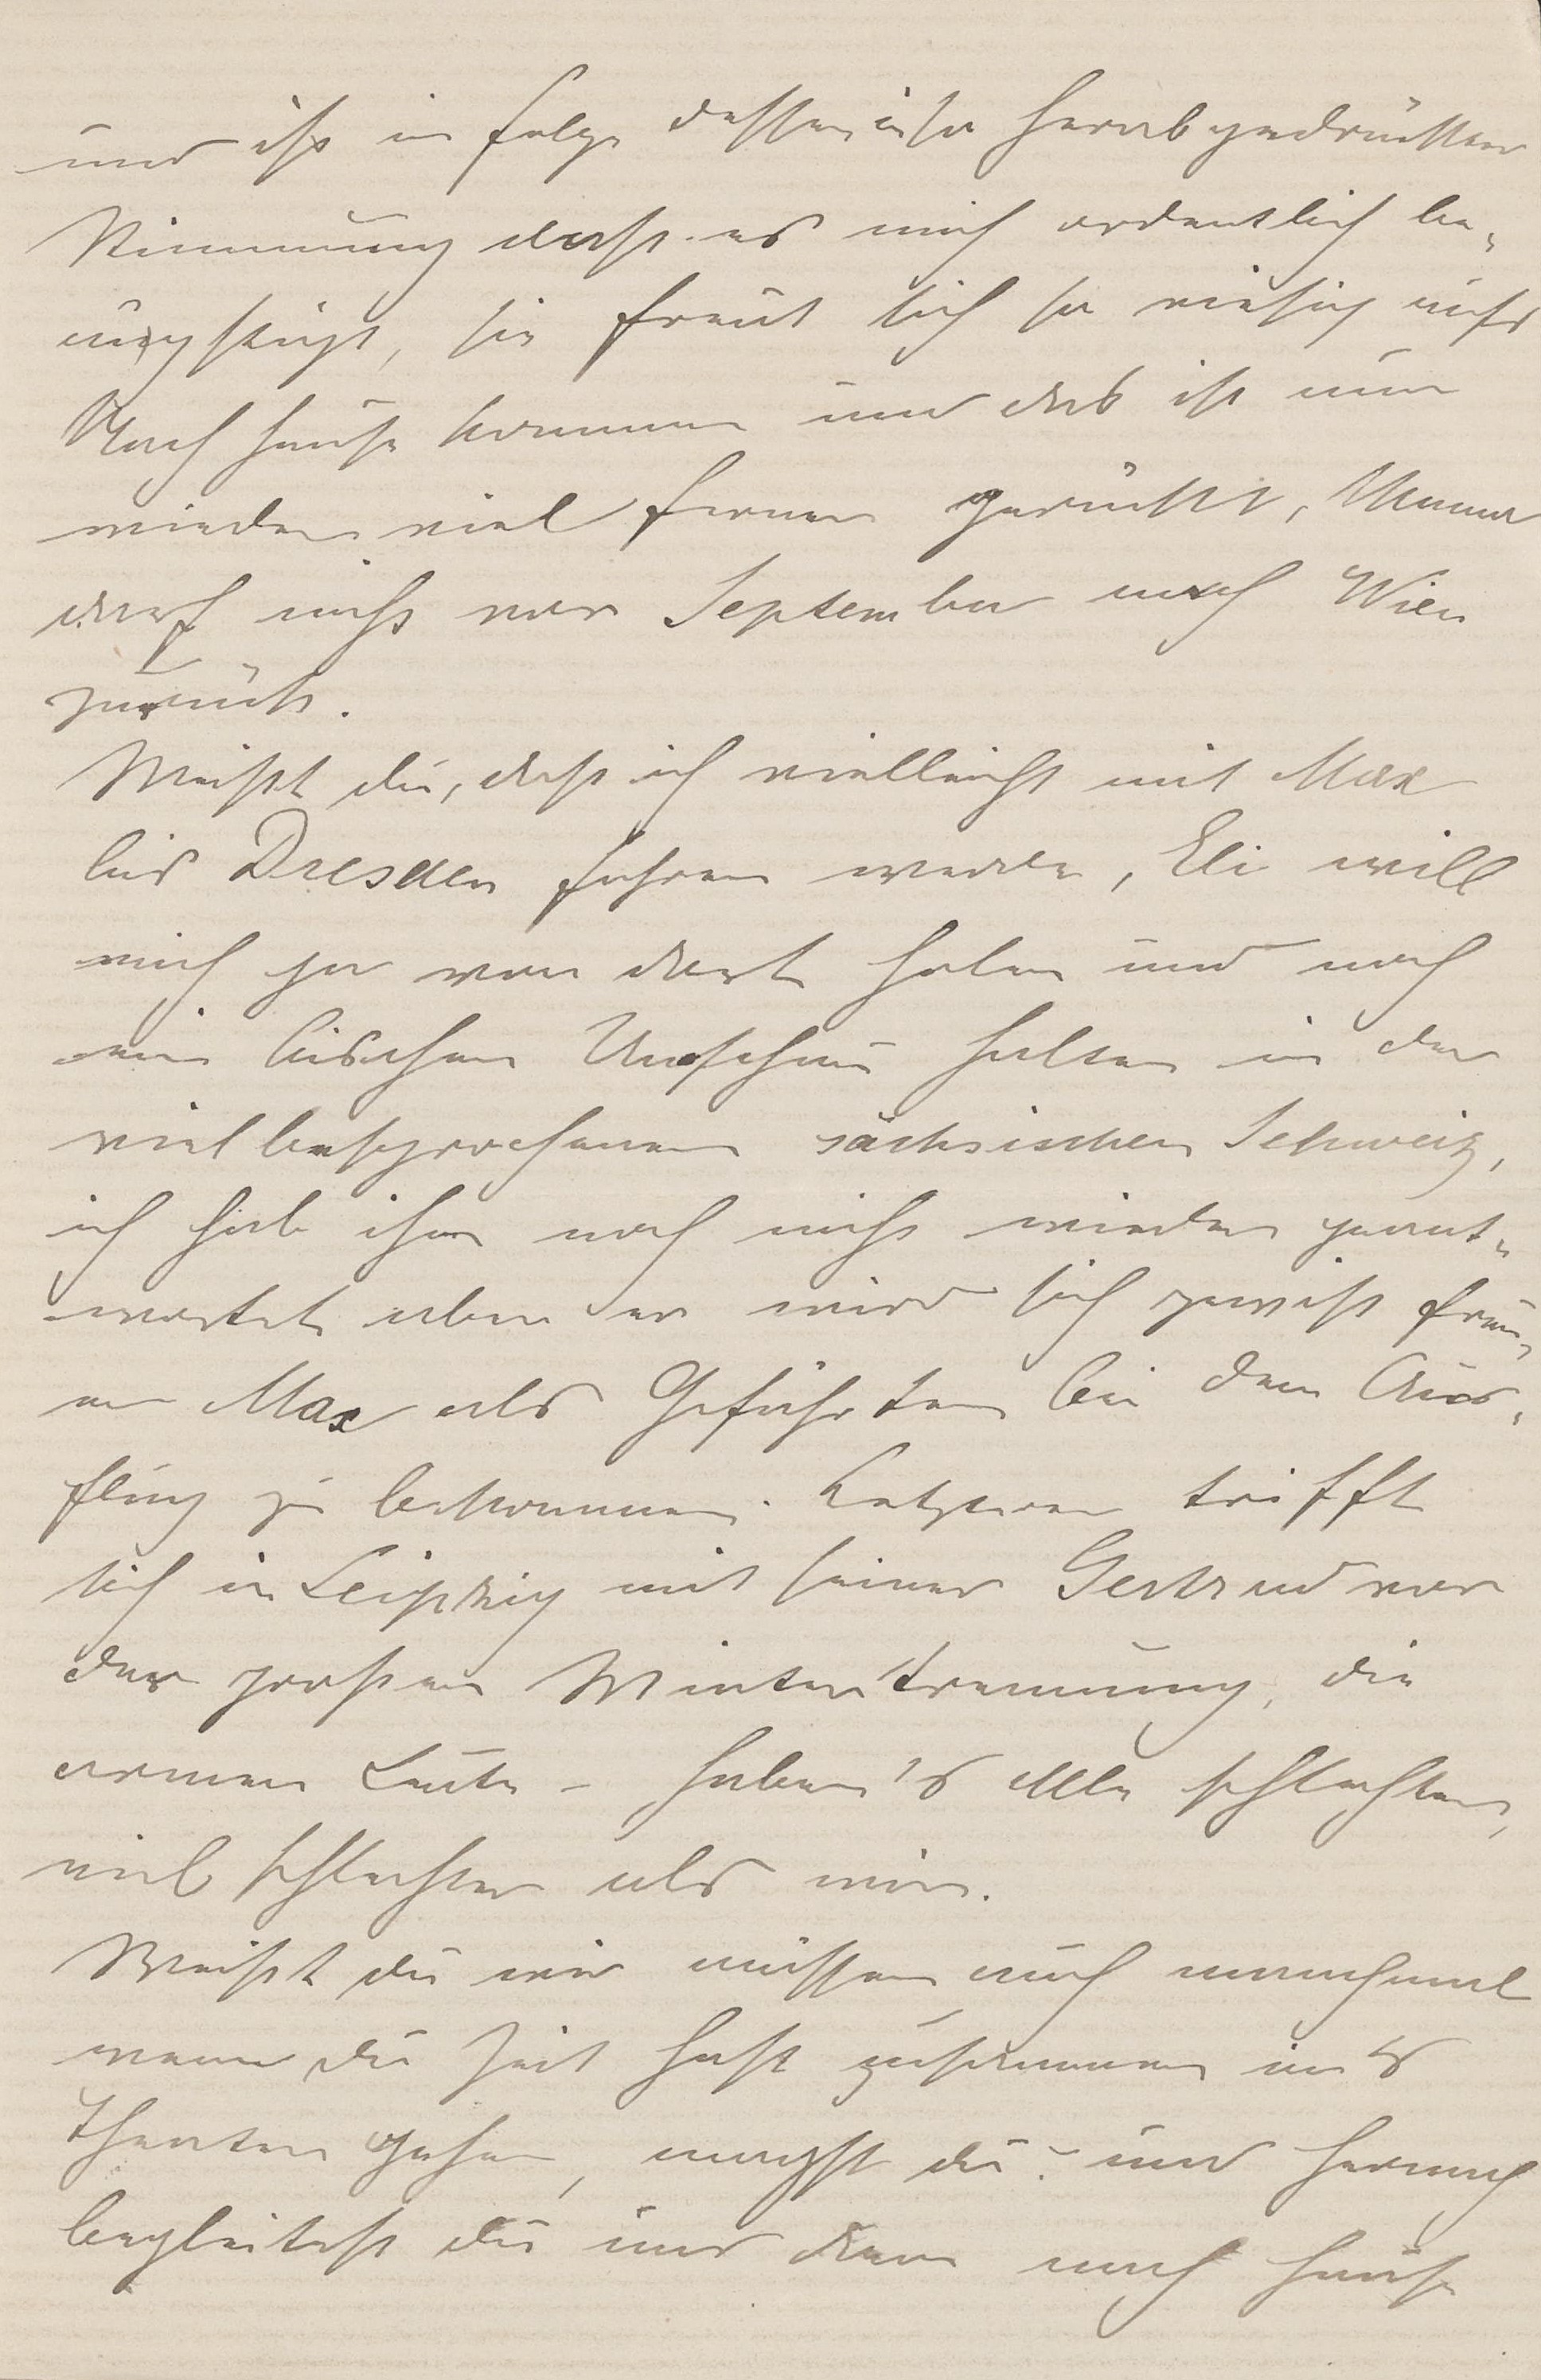 und ist in folge dessen in so herabgedrückter
Stimmung dass es mich ordentlich be-
ängstigt, sie freut sich so riesig aufs
Nach hause kommen und das ist nun
wieder viel ferner gerückt, Mama
darf nicht vor September nach Wien
zurück.
Weißt du, dass ich vielleicht mit Max
bis Dresden fahren werde, Eli will
mich ja von dort holen und noch
ein bischen Umschau halten in der
vielbesprochenen sächsischen Schweiz,
ich hab ihm noch nicht wieder geant-
wortet aber er wird sich gewiss freu-
en Max als Gefährten bei dem Aus-
flug zu bekommen. trifft
sich in Leipzig mit seiner Gertrud vor
der großen Wintertrennung, die
armen Leute - haben's alle schlechter,
viel schlechter als wir.
Weißt du wir müssen auch manchmal
wenn du Zeit hast zusammen in's
Theater gehen, magst du? und hernach
begleitest du uns dann nach hause